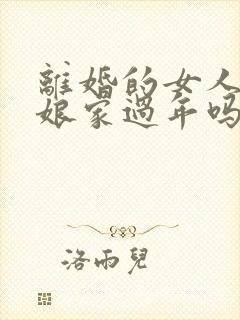 離婚的女人
娘家過年吗
洛雨兒